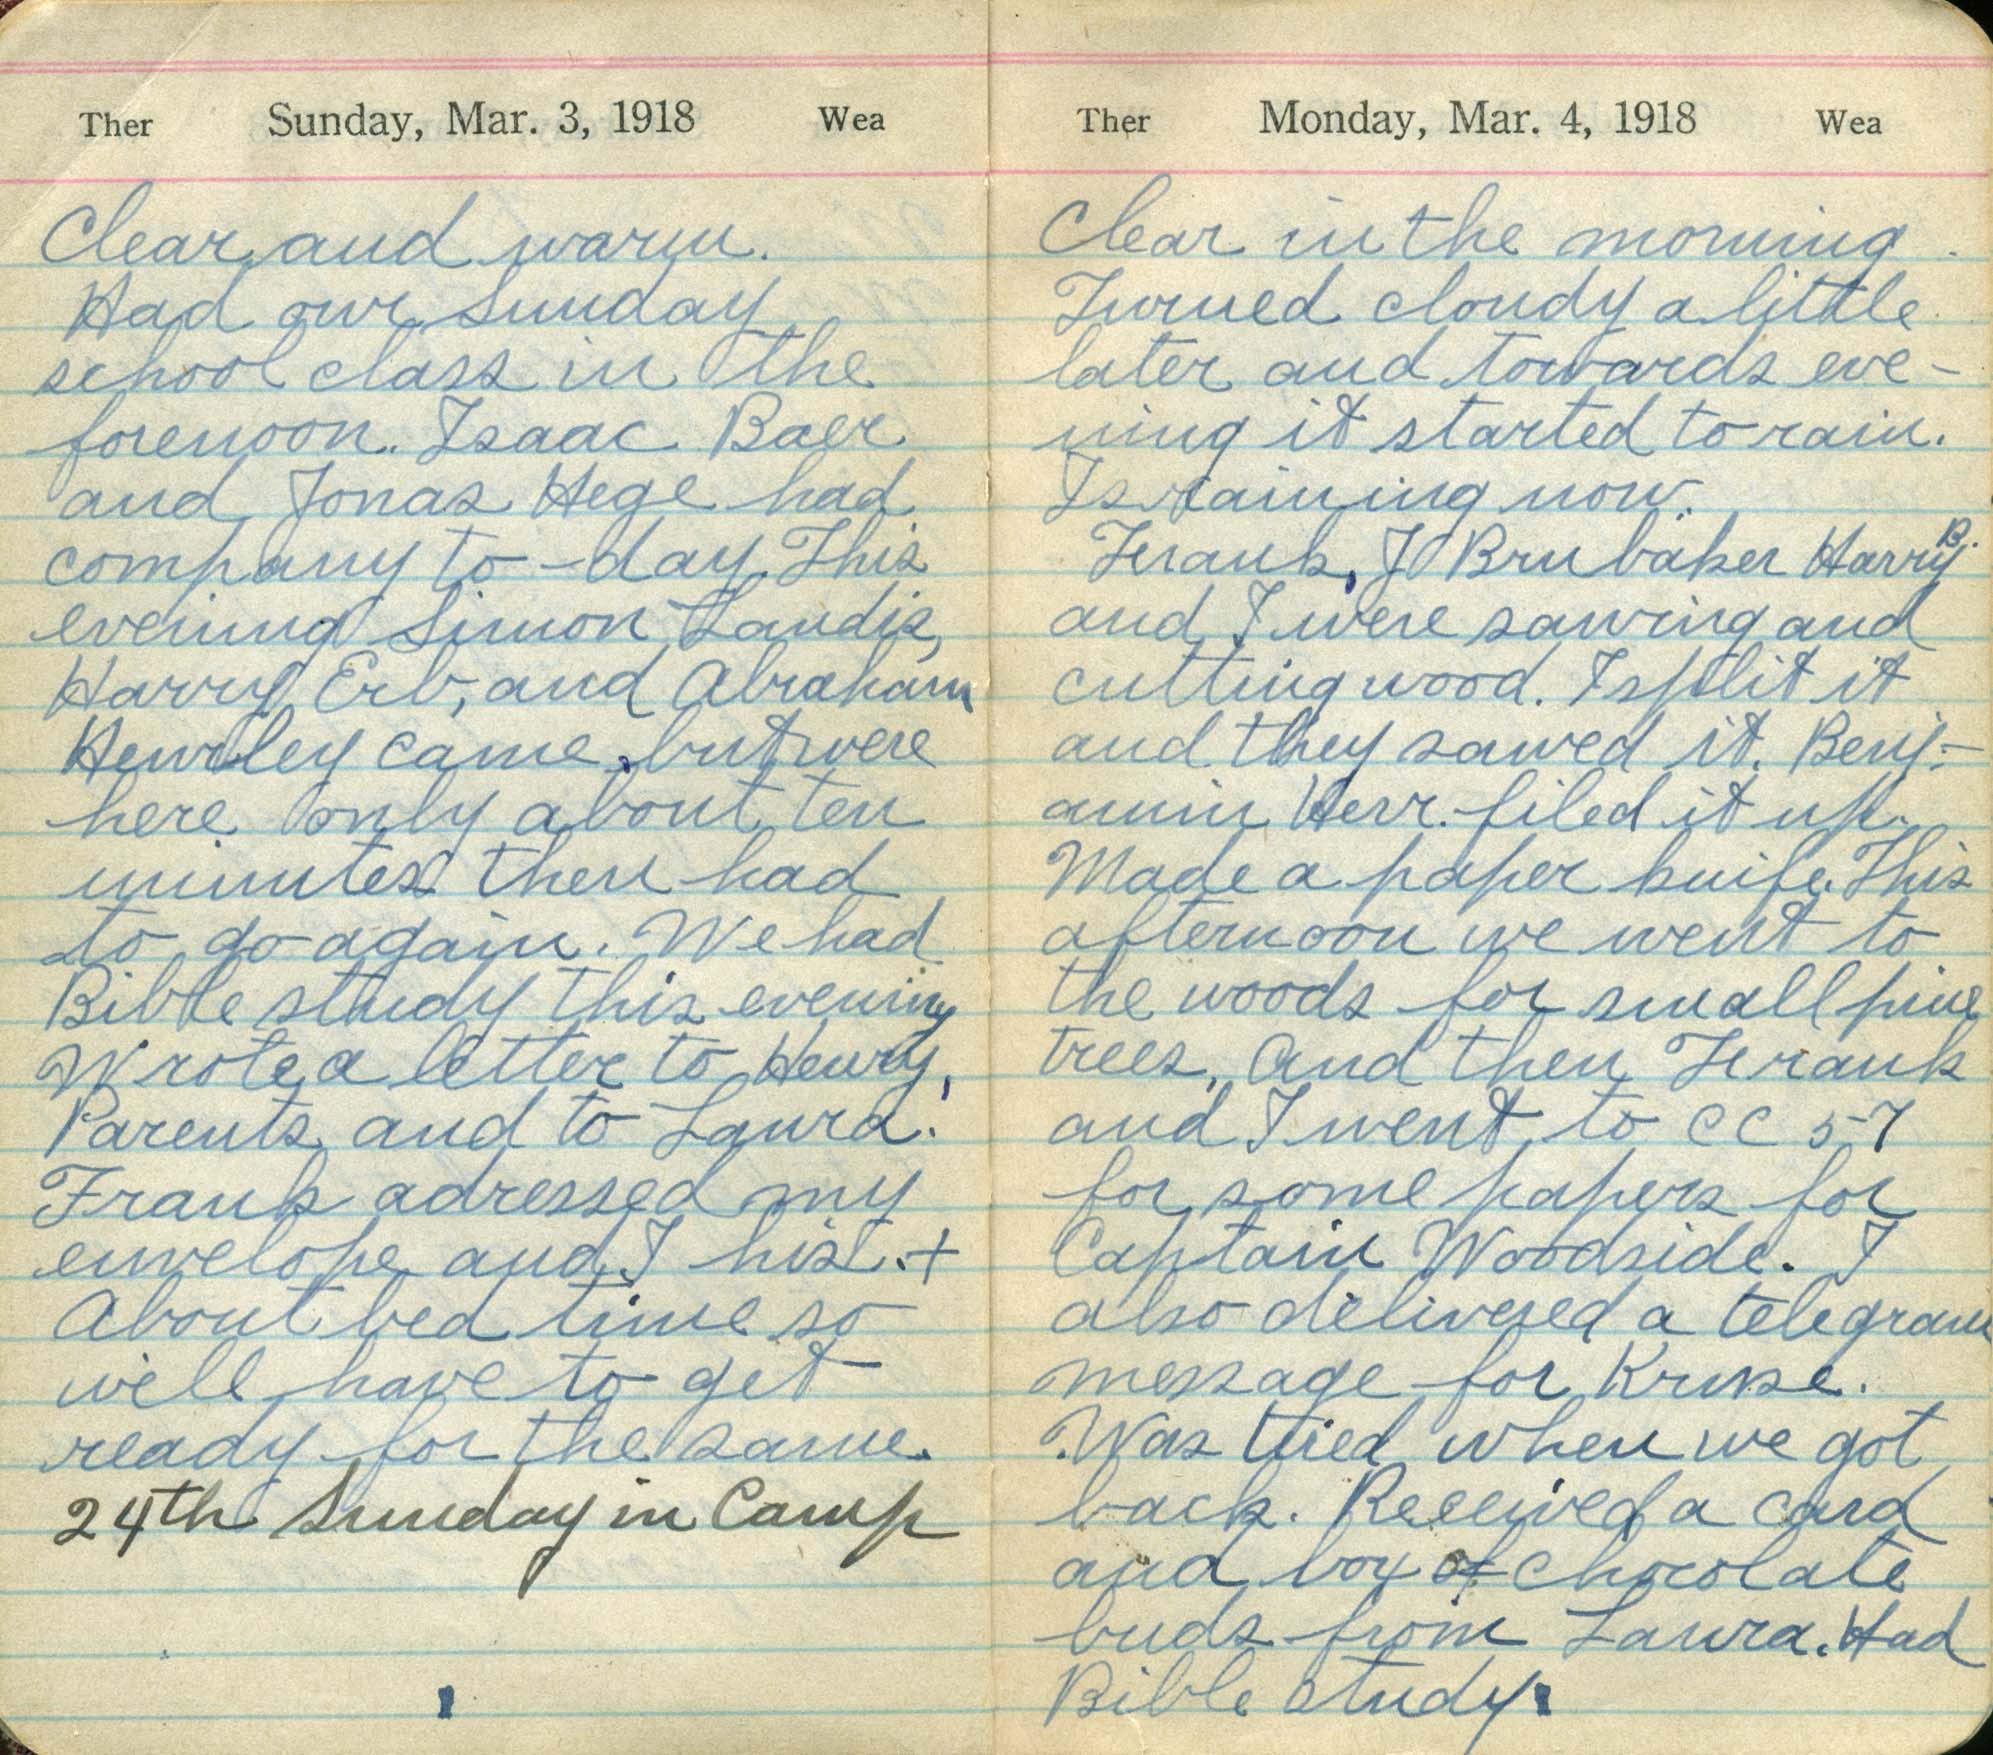 Ther Sunday, Mar. 3, 1918 Wea
Clear and warm.
Had our Sunday
school class in the
forenoon. Isaac Baer
and Jonas Hege had
company to-day. This
evening Simon Landis,
Harry Erb, and Abraham
came, but were
here only about ten
minutes then had
to go again. We had
Bible study this evening
Wrote a letter to Henry,
Parents and to Laura.
Frank adressed my
envelope and I his. +
About bed time so
will have to get
ready for the same.
24th Sunday in Camp
Ther Monday, Mar. 4, 1918 Wea
Clear in the morning.
Turned cloudy a little
later and towards eve-
ning it started to rain.
Is raining now.
Frank, J Brubaker Harry B.
and I were sawing and
cutting wood. I split it
and they sawed it. Benj-
amin Herr. filed it up.
Made a paper knife. This
afternoon we went to
the woods for small pine
trees, and then Frank
and I went to CC 57
for some papers for
Captain Woodside. I
also delivered a telegram
message for Kruse.
Was tired when we got
back. Received a card
and box of chocolate
buds from Laura. Had
Bible study.